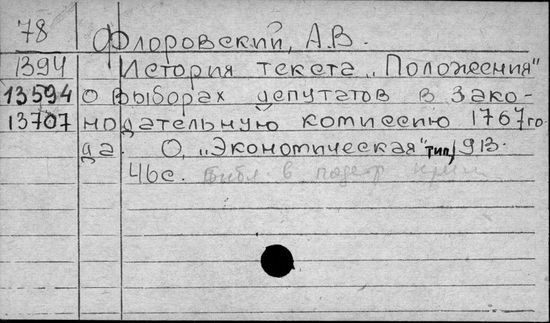 78 Флоровский, А.В.
1394 История текста „Положения"
13594 о выборах депутатов в Зако-
13707 нодательную комиссию 1767 го-
да. О, „Экономическая" тип, 913.
46с. Библ. в